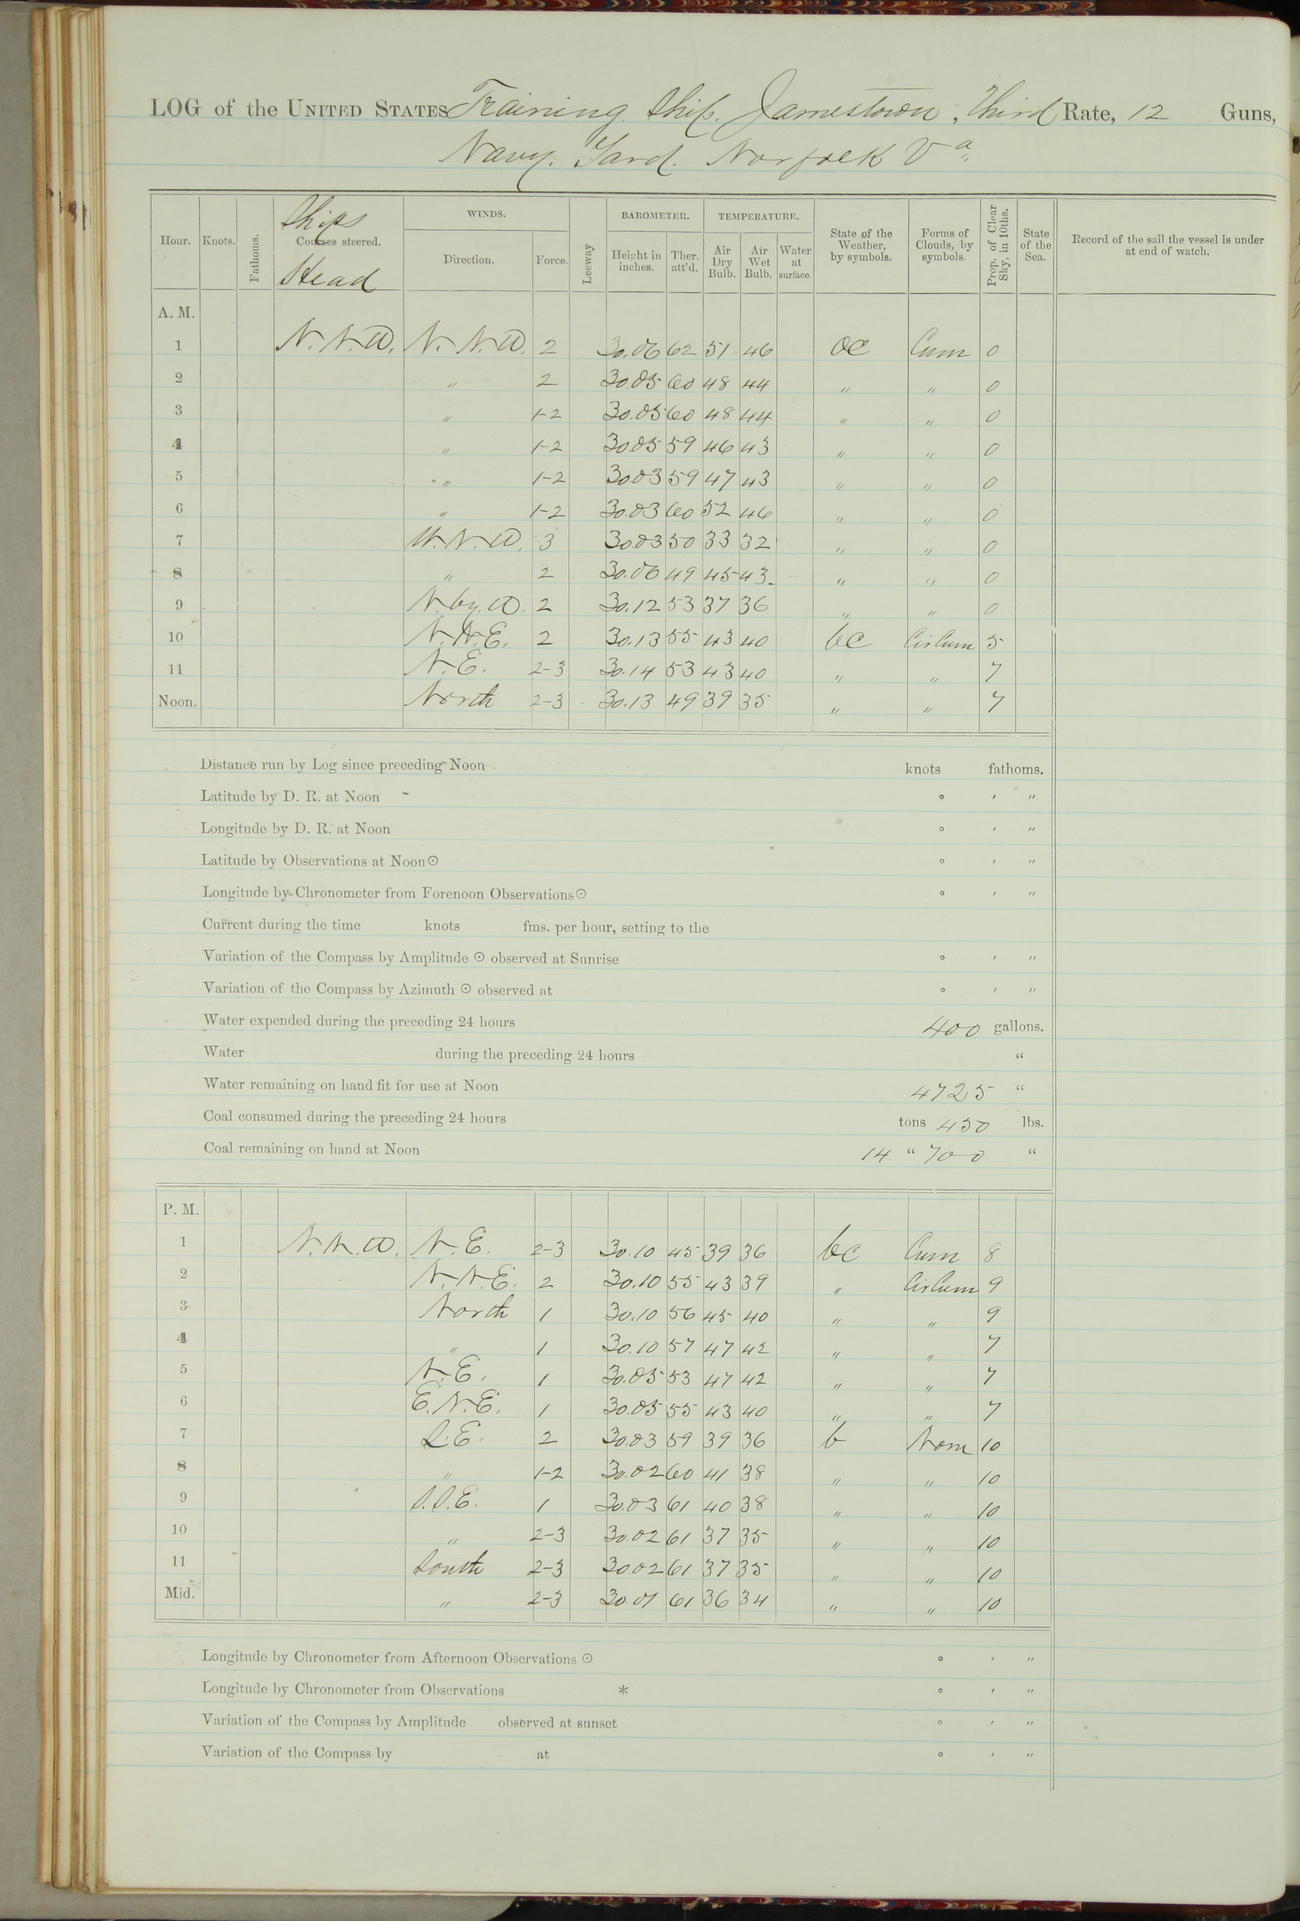 LOG of the UNITED STATES Training Ship. Jamestown, Third Rate, 12 Guns,
Navy. Yard. Norfolk Va
Hour. Knots. Fathoms. Ships Courses steered. Head WINDS. Direction. Force. Leeway BAROMETER. Height in inches. Ther. att'd. TEMPERATURE. Air Dry Bulb. Air Wet Bulb. Water at surface. State of the Weather, by symbols. Forms of Clouds, by symbols. Prop. of Clear Sky, in 10ths. State of the Sea. Record of the sail the vessel is under at end of watch.
A. M.
1 N.N.W. N.N.W. 2 30.06 62 51 46 oc Cum 0
2 " 2 30.05 60 48 44 " " 0
3 " 1-2 30.05 60 48 44 " " 0
4 " 1-2 30.05 59 46 43 " " 0
5 " 1-2 30.03 59 47 43 " " 0
6 " 1-2 30.03 60 52 46 " " 0
7 W.N.W. 3 30.03 50 33 32 " " 0
8 " 2 30.06 49 45 43 " " 0
9 N.by.W. 2 30.12 53 37 36 " " 0
10 N.N.E. 2 30.13 55 43 40 bc CirCum 5
11 N.E. 2-3 30.14 53 43 40 " " 7
Noon. North 2-3 30.13 49 39 35 " " 7
Distance run by Log since preceding Noon knots fathoms.
Latitude by D. R. at Noon ° ′ ″
Longitude by D. R. at Noon ° ′ ″
Latitude by Observations at Noon ☉ ° ′ ″
Longitude by Chronometer from Forenoon Observations ☉ ° ′ ″
Current during the time knots fms. per hour, setting to the
Variation of the Compass by Amplitude ☉ observed at Sunrise ° ′ ″
Variation of the Compass by Azimuth ☉ observed at ° ′ ″
Water expended during the preceding 24 hours 400 gallons.
Water during the preceding 24 hours "
Water remaining on hand fit for use at Noon 4725 "
Coal consumed during the preceding 24 hours tons 450 lbs.
Coal remaining on hand at Noon 14 " 700 "
P. M.
1 N.N.W. N.E. 2-3 30.10 45 39 36 bc Cum 8
2 N.N.E. 2 30.10 55 43 39 " CirCum 9
3 North 1 30.10 56 45 40 " " 9
4 " 1 30.10 57 47 42 " " 7
5 N.E. 1 30.05 53 47 42 " " 7
6 E.N.E. 1 30.05 55 43 40 " " 7
7 S.E. 2 30.03 59 39 36 b None 10
8 " 1-2 30.02 60 41 38 " " 10
9 S.S.E. 1 30.03 61 40 38 " " 10
10 " 2-3 30.02 61 37 35 " " 10
11 South 2-3 30.02 61 37 35 " " 10
Mid. " 2-3 30.01 61 36 34 " " 10
Longitude by Chronometer from Afternoon Observations ☉ ° ′ ″
Longitude by Chronometer from Observations * ° ′ ″
Variation of the Compass by Amplitude observed at sunset ° ′ ″
Variation of the Compass by at ° ′ ″